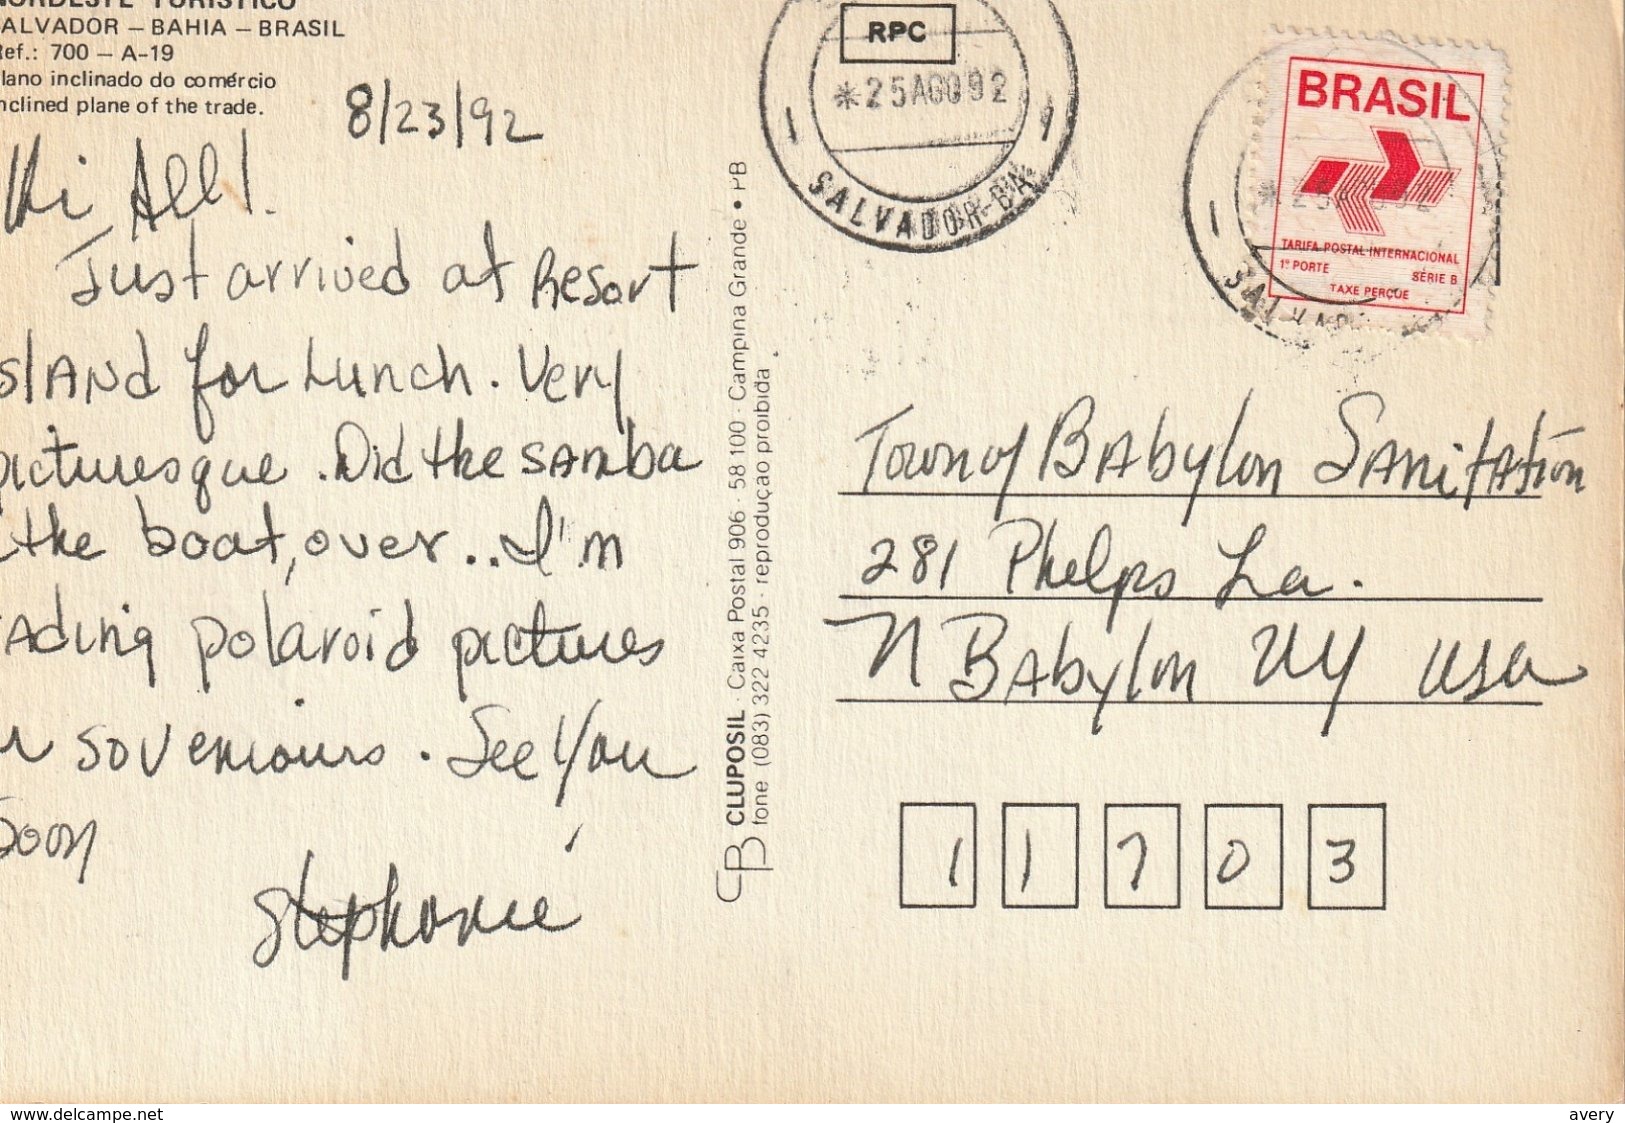 NORDESTE TURÍSTICO
SALVADOR — BAHIA — BRASIL
Ref.: 700 — A-19
lano inclinado do comércio
nclined plane of the trade.
8/23/92
Hi All!
Just arrived at Resort
sland for Lunch. Very
picturesque. Did the samba
the boat, over.. I'm
ading polaroid pictures
r soveniours. See you
soon
Stephanie
CLUPOSIL · Caixa Postal 906 · 58 100 · Campina Grande • PB
fone (083) 322 4235 · reprodução proibida
RPC
*25AGO92
SALVADOR-BA
BRASIL
TARIFA POSTAL INTERNACIONAL
1º PORTE SÉRIE B
TAXE PERÇUE
Town of Babylon Sanitation
281 Phelps La.
N Babylon NY USA
11703
www.delcampe.net
avery